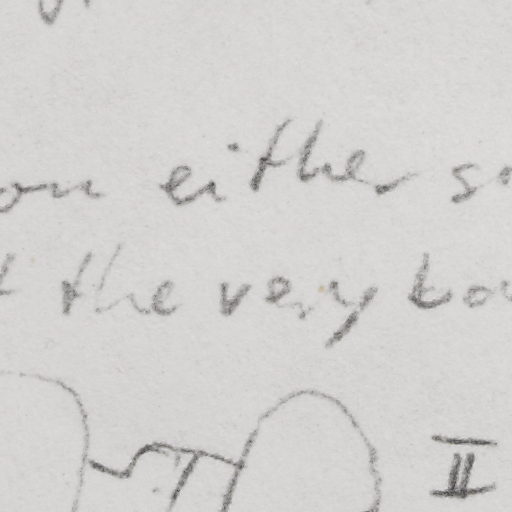 on either
the very
II